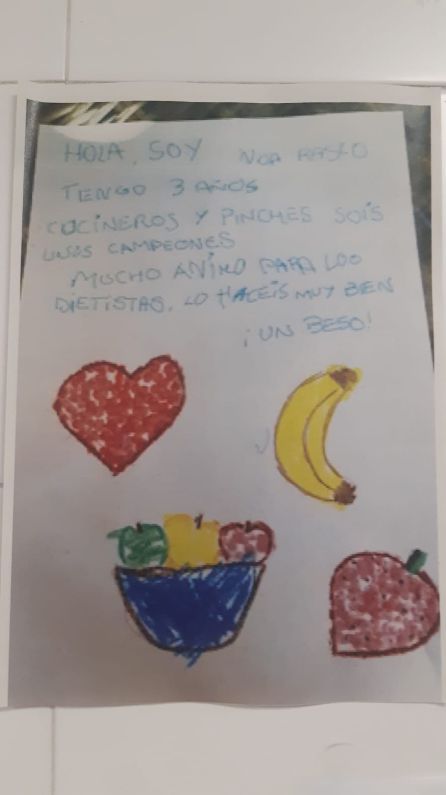 HOLA, SOY NOA
TENGO 3 AÑOS
COCINEROS Y PINCHES SOIS
UNOS CAMPEONES
MUCHO ANIMO PARA LOO
DIETISTAS, LO HACEIS MUY BIEN
¡UN BESO!